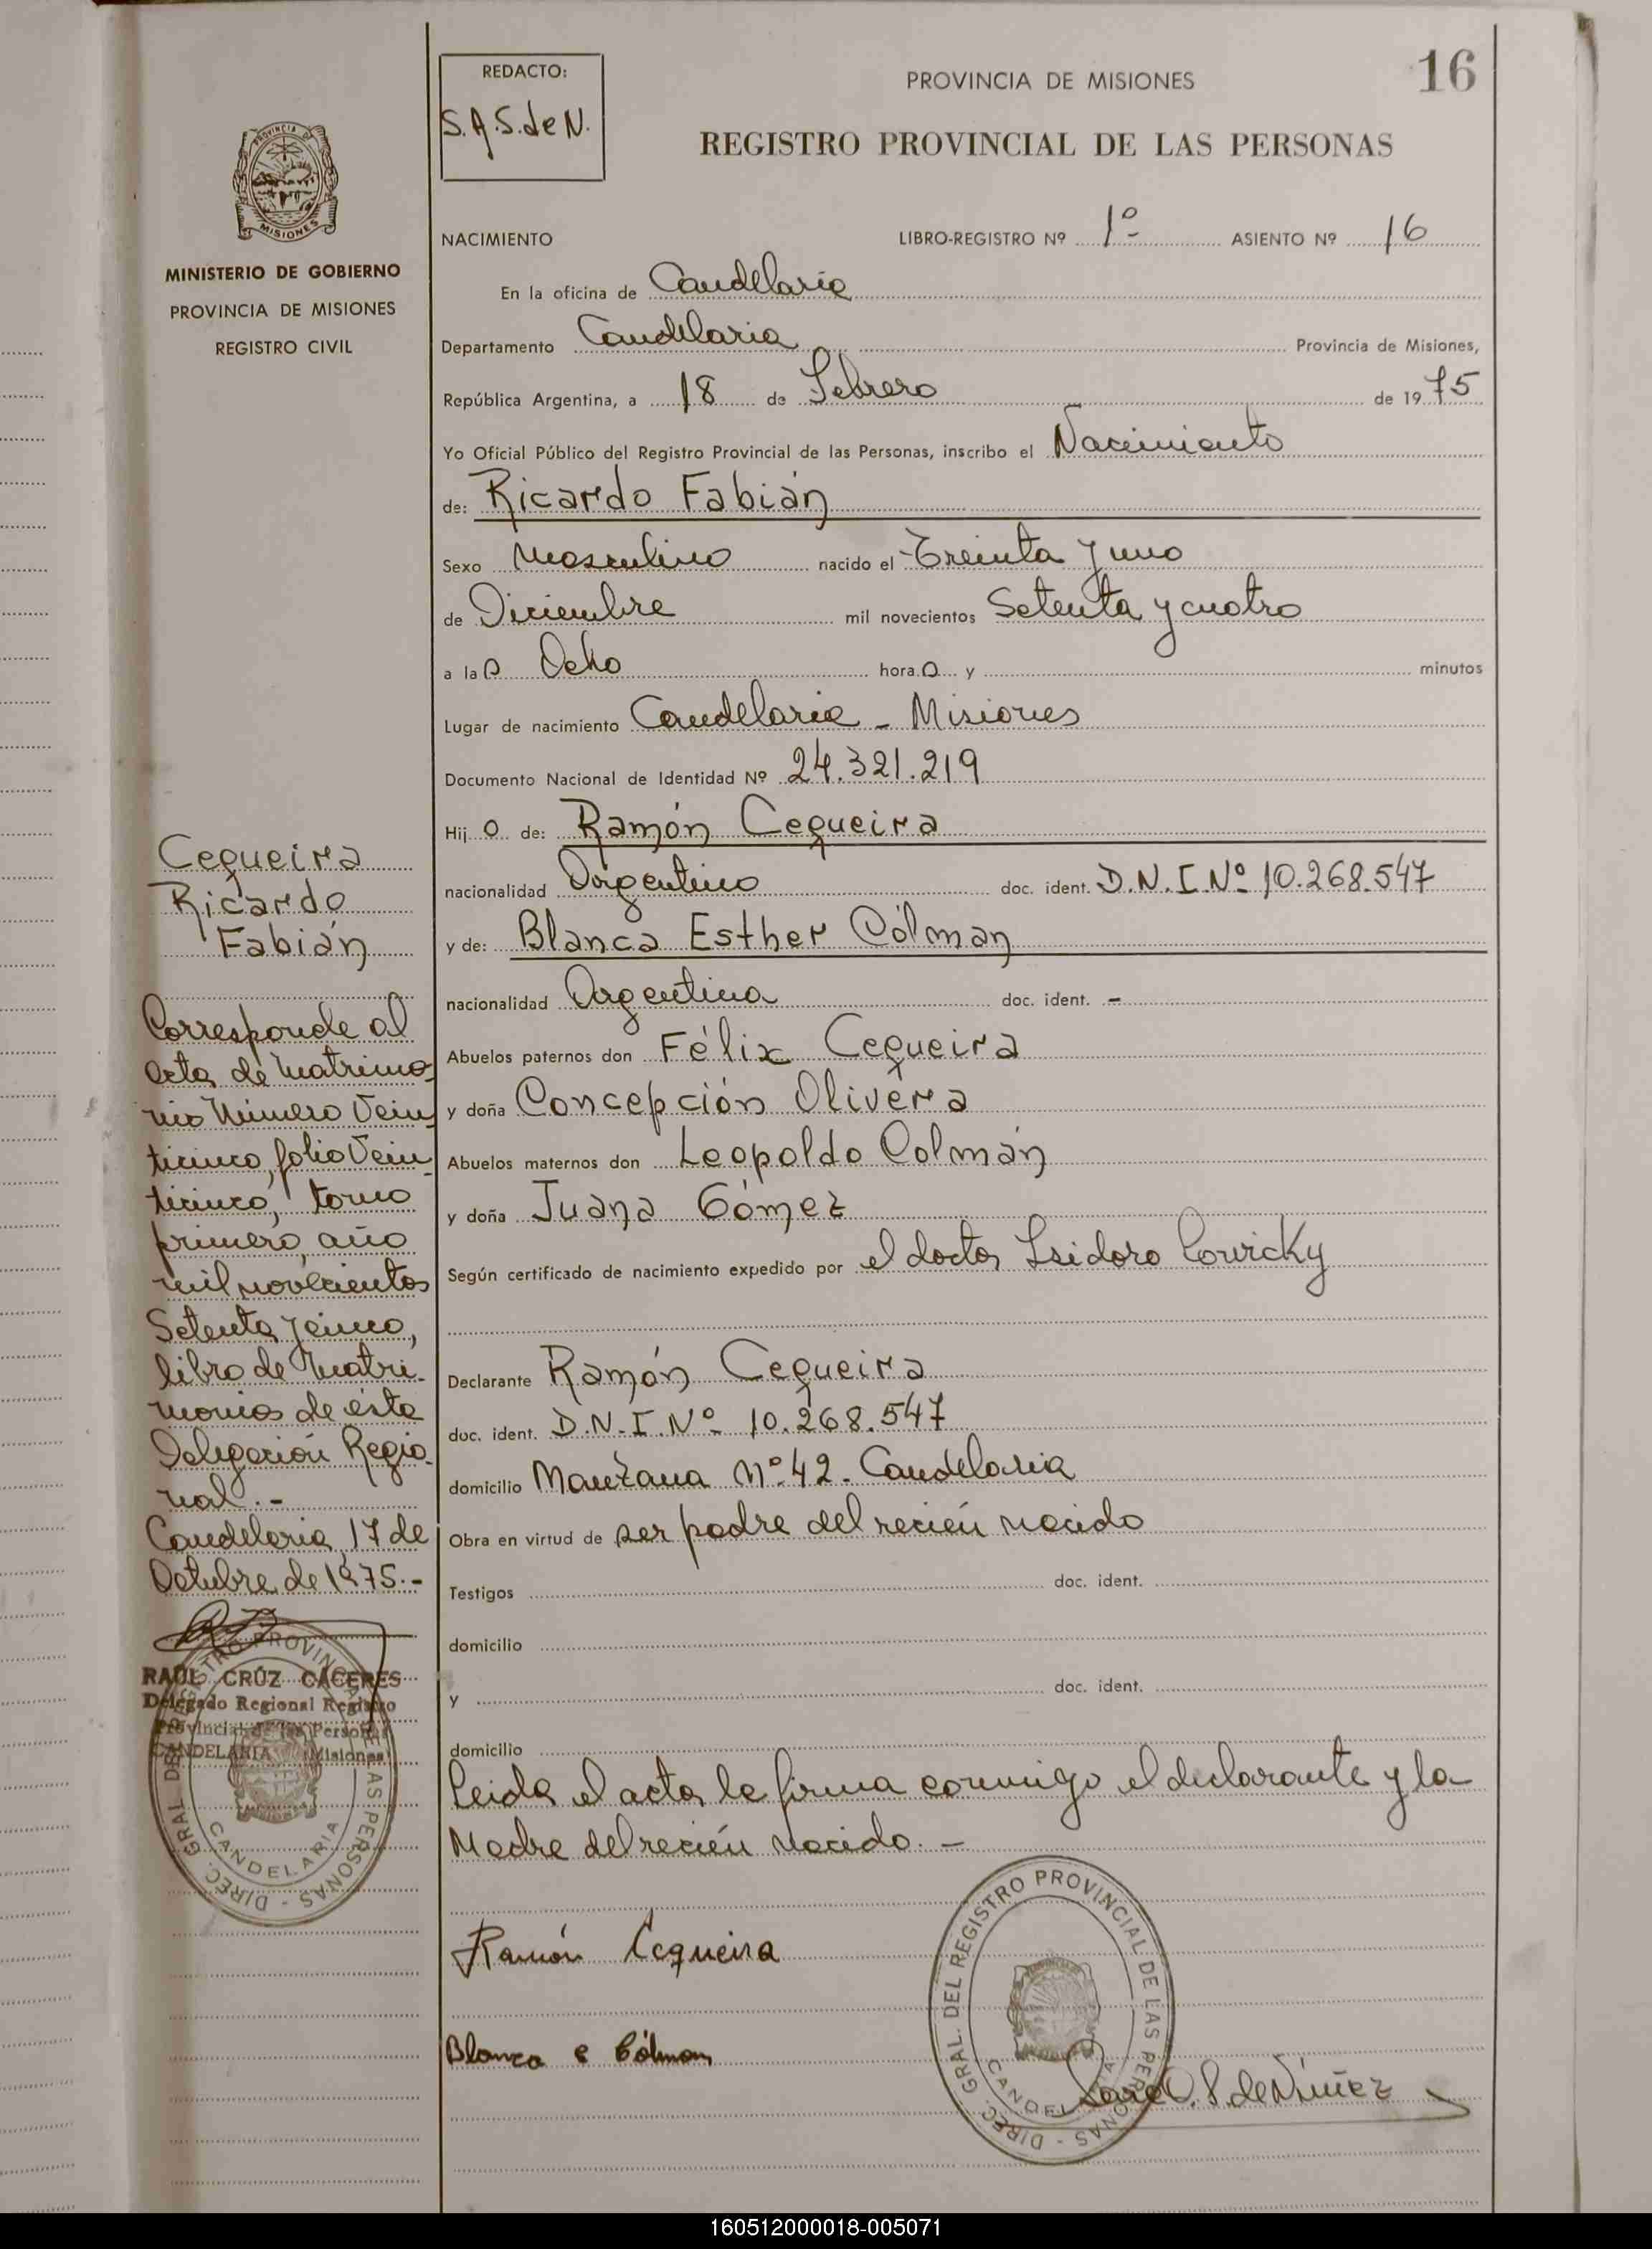 REDACTO:
S.A.S.de N.
PROVINCIA DE MISIONES
16
REGISTRO PROVINCIAL DE LAS PERSONAS
PROVINCIA DE
MISIONES
MINISTERIO DE GOBIERNO
PROVINCIA DE MISIONES
REGISTRO CIVIL
NACIMIENTO LIBRO-REGISTRO Nº 1º ASIENTO Nº 16
En la oficina de Candelaria
Departamento Candelaria Provincia de Misiones,
República Argentina, a 18 de Febrero de 1975
Yo Oficial Público del Registro Provincial de las Personas, inscribo el Nacimiento
de: Ricardo Fabián
Sexo Masculino nacido el Treinta y uno
de Diciembre mil novecientos Setenta y cuatro
a las Ocho horas y minutos
Lugar de nacimiento Candelaria - Misiones
Documento Nacional de Identidad Nº 24.321.219
Hijo de: Ramón Cequeira
nacionalidad Argentino doc. ident. D.N.I.Nº 10.268.547
y de: Blanca Esther Cólman
nacionalidad Argentina doc. ident. -
Abuelos paternos don Félix Cequeira
y doña Concepción Olivera
Abuelos maternos don Leopoldo Colmán
y doña Juana Gómez
Según certificado de nacimiento expedido por el doctor Isidoro
Declarante Ramón Cequeira
doc. ident. D.N.I.Nº 10.268.547
domicilio Manzana Nº 42 - Candelaria
Obra en virtud de ser padre del recién nacido
Testigos doc. ident.
domicilio
y doc. ident.
domicilio
Leida el acta la firma conmigo el declarante y la
Madre del recién nacido. -
Ramón Cequeira
Blanca E Cólman
DIREC. GRAL. DEL REGISTRO PROVINCIAL DE LAS PERSONAS
CANDELARIA
Sara A. S. de Núñez
Cequeira
Ricardo
Fabián
Corresponde al
acta de Matrimo-
nio Número Vein
ticinco, folio Vein
ticinco, tomo
primero, año
mil novecientos
Setenta y cinco,
libro de Matri-
monios de ésta
Delegación Regio-
nal. -
Candelaria, 17 de
Octubre de 1975. -
RAUL CRÚZ CÁCERES
Delegado Regional Registro
Provincial de las Personas
CANDELARIA Misiones
DIREC. GRAL. DEL REGISTRO PROVINCIAL DE LAS PERSONAS
CANDELARIA
160512000018-005071